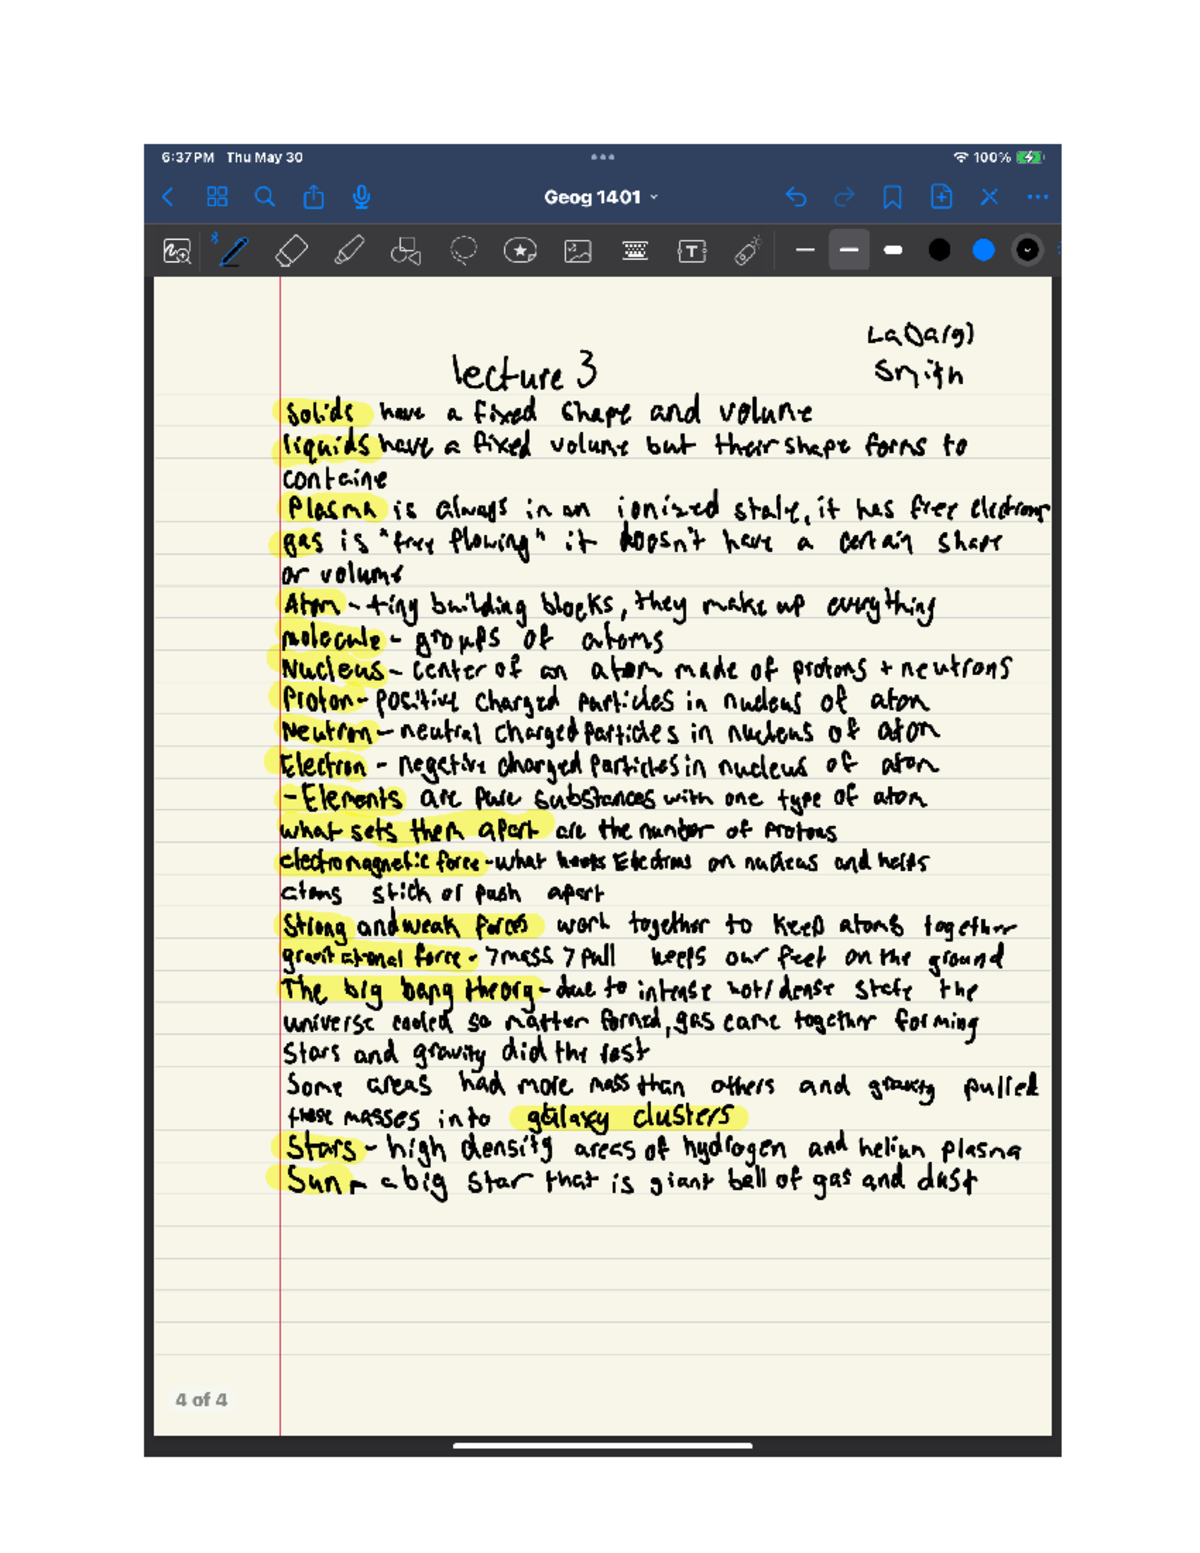 6:37 PM Thu May 30
100%
Geog 1401
Smith
lecture 3
Solids have a fixed shape and volume
liquids have a fixed volume but their shape forms to
containe
Plasma is always in an ionized state, it has free electrons
gas is "free flowing" it doesn't have a certain shape
or volume
Atom - tiny building blocks, they make up everything
molecule - groups of atoms
Nucleus - center of an atom made of protons + neutrons
Proton - positive charged particles in nucleus of atom
Neutron - neutral charged particles in nucleus of atom
Electron - negative charged particles in nucleus of atom
- Elements are pure substances with one type of atom
what sets them apart are the number of protons
electromagnetic force - what Electrons on nucleus and helps
atoms stick or push apart
Strong and weak forces work together to keep atoms together
gravitational force - 7 mass 7 pull keeps our feet on the ground
The big bang theory - due to intense hot/dense state the
universe cooled so matter formed, gas came together forming
Stars and gravity did the rest
Some areas had more mass than others and gravity pulled
these masses into galaxy clusters
Stars - high density areas of hydrogen and helium plasma
Sun - a big star that is giant ball of gas and dust
4 of 4